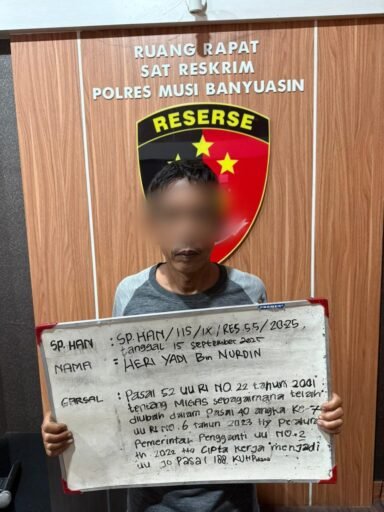 RUANG RAPAT
SAT RESKRIM
POLRES MUSI BANYUASIN
RESERSE
SP. HAN : SP. HAN / 115 / IX / RES 5.5 / 2025,
tanggal 15 september 2025
NAMA : HERI YADI Bin NURDIN
PASAL : Pasal 52 UU RI NO. 22 tahun 2001
tentang MIGAS sebagaimana telah
diubah dalam Pasal 40 angka Ke-
UU RI NO. 6 tahun 2023 ttg Peraturan
Pemerintah Pengganti UU NO. 2
th 2022 ttg Cipta Kerja menjadi
UU JO Pasal 188 KUHPidana